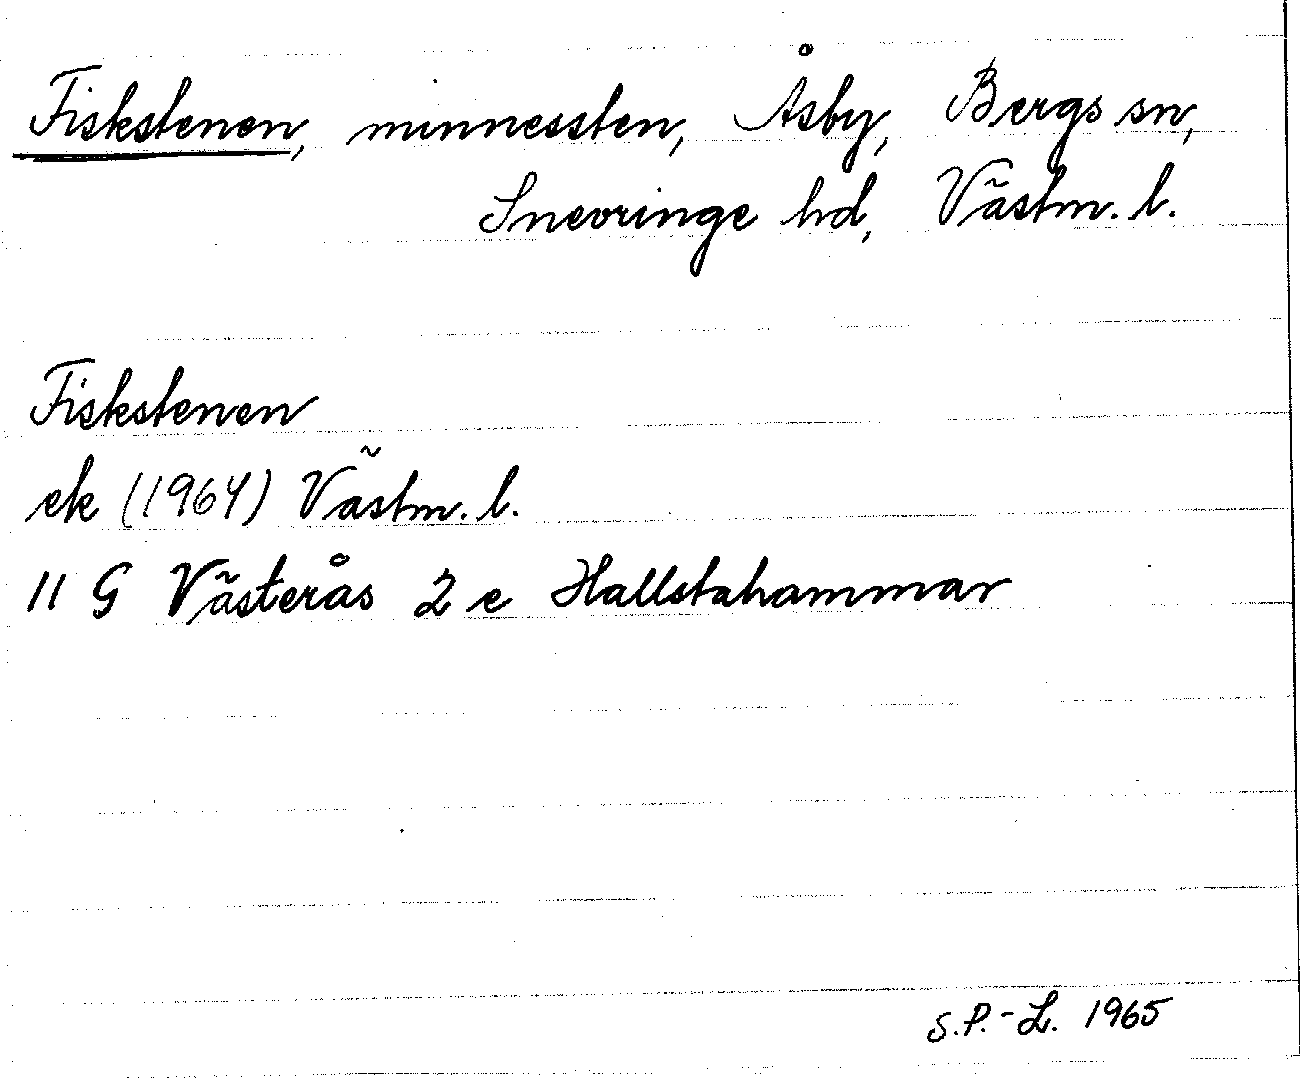 Fiskstenen, minnessten, Åsby, Bergs sn,
Snevringe hd, Västm. l.
Fiskstenen
ek (1964) Västm. l.
11 G Västerås 2 e Hallstahammar
S.P.-L. 1965